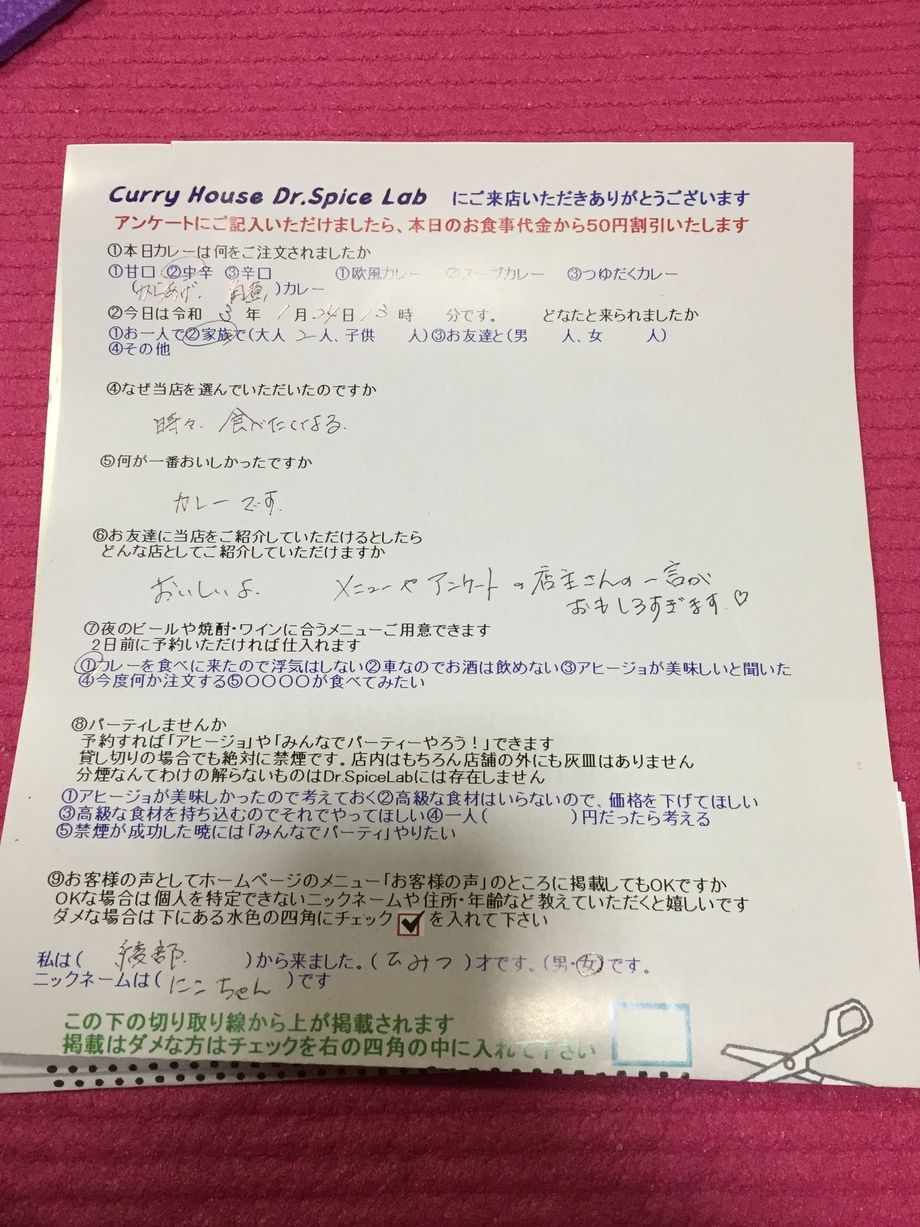 Curry House Dr.Spice Lab にご来店いただきありがとうございます
アンケートにご記入いただけましたら、本日のお食事代金から50円割引いたします
①本日カレーは何をご注文されましたか
①甘口 ②中辛 ③辛口 ①欧風カレー ②スープカレー ③つゆだくカレー
(からあげ、 )カレー
②今日は令和 3 年 1月24日13時 分です。 どなたと来られましたか
①お一人で②家族で(大人 2人、子供 人)③お友達と(男 人、女 人)
④その他
④なぜ当店を選んでいただいたのですか
時々、食べたくなる。
⑤何が一番おいしかったですか
カレーです。
⑥お友達に当店をご紹介していただけるとしたら
どんな店としてご紹介していただけますか
おいしいよ。 メニューやアンケートの店主さんの一言が
おもしろすぎます。♡
⑦夜のビールや焼酎・ワインに合うメニューご用意できます
2日前に予約いただければ仕入れます
①カレーを食べに来たので浮気はしない②車なのでお酒は飲めない③アヒージョが美味しいと聞いた
④今度何か注文する⑤〇〇〇〇が食べてみたい
⑧パーティしませんか
予約すれば「アヒージョ」や「みんなでパーティーやろう！」できます
貸し切りの場合でも絶対に禁煙です。店内はもちろん店舗の外にも灰皿はありません
分煙なんてわけの解らないものはDr.SpiceLabには存在しません
①アヒージョが美味しかったので考えておく②高級な食材はいらないので、価格を下げてほしい
③高級な食材を持ち込むのでそれでやってほしい④一人( )円だったら考える
⑤禁煙が成功した暁には「みんなでパーティ」やりたい
⑨お客様の声としてホームページのメニュー「お客様の声」のところに掲載してもOKですか
OKな場合は個人を特定できないニックネームや住所・年齢など教えていただくと嬉しいです
ダメな場合は下にある水色の四角にチェック を入れて下さい
私は( 綾部 )から来ました。( ひみつ )才です。(男・女)です。
ニックネームは( にこちゃん )です
この下の切り取り線から上が掲載されます
掲載はダメな方はチェックを右の四角の中に入れて下さい